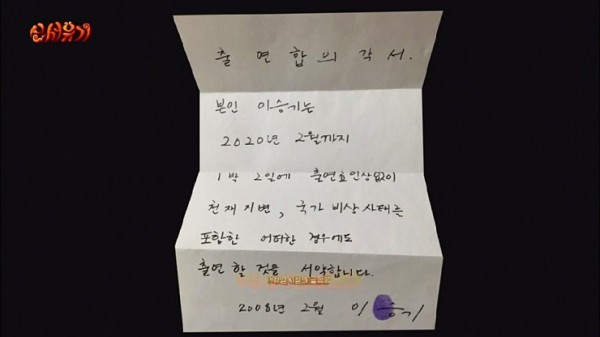 신서유기
출연합의각서.
본인 이승기는
2020년 2월까지
1박 2일에 출연료인상없이
천재지변, 국가 비상사태를
포함한 어떠한 경우에도
출연 할 것을 서약합니다.
2008년 2월 이승기